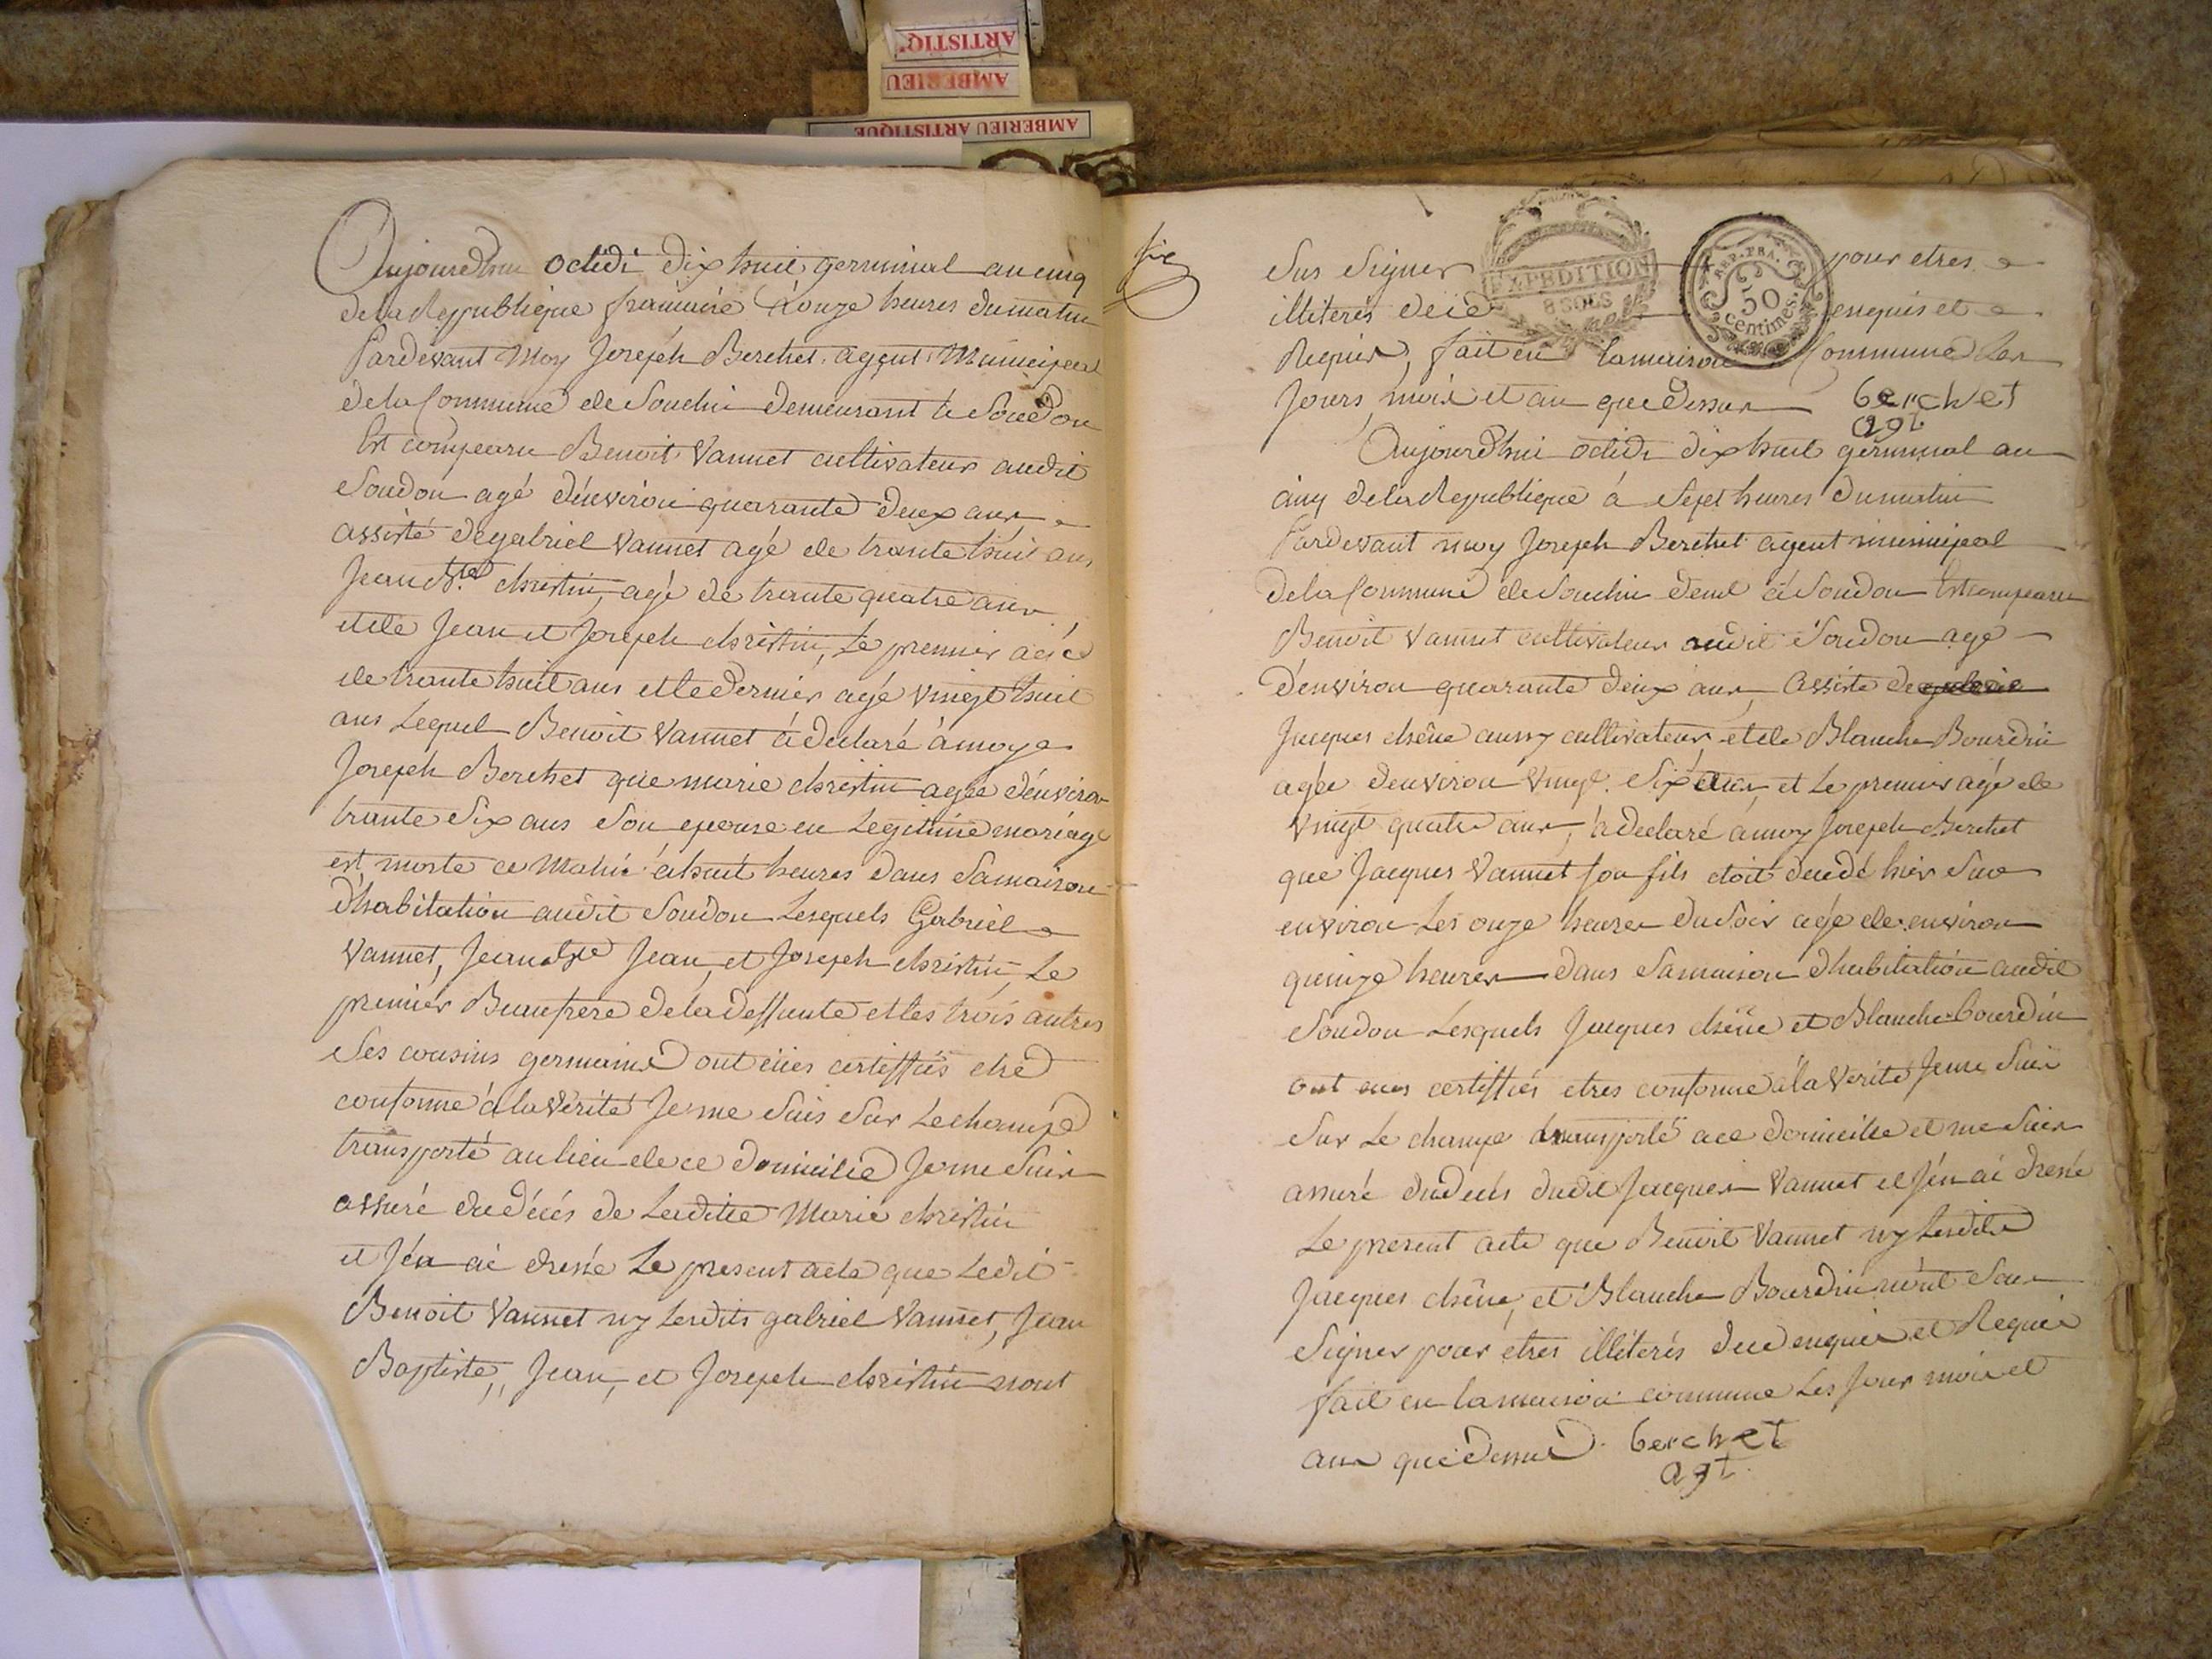 ARTISTIQ
AMBERIEU
AMBERIEU ARTISTIQUE
Aujourdhui octidi dix huit germinal an cinq
de la Republique francaise à onze heures du matin
Pardevant Moy Joseph Berchet agent Municipal
de la Commune de Souclin demeurant à Soudon
Est comparu Benoit Vannet cultivateur audit
Soudon agé d'environ quarante deux ans
assisté de gabriel Vannet agé de trante huit ans
Jean Bte christin, agé de trante quatre ans
et de Jean et Joseph christin, Le premier agé
de trante huit ans et le dernier agé vingt huit
ans Lequel Benoit Vannet à declaré à moy
Joseph Berchet que marie christin agée d'environ
trante Six ans Son epouse en Legitime mariage
est morte ce Matin à huit heures dans Sa maison
d'habitation audit Soudon Lesquels Gabriel
Vannet, Jean Bte Jean, et Joseph christin, Le
premier Beaufrere de la deffunte et les trois autres
Ses cousins germains ont certiffiés etre
conforme à la Verité Je me Suis Sur Le champ
transporté au lieu de ce domicilie Je me Suis
assuré du décés de Laditte Marie christin
et J'én ai dressé Le present acte que Ledit
Benoit Vannet ny Lesdits gabriel Vannet, Jean
Baptiste,, Jean, et Joseph christin nont
Sus Signer pour etres
illiterés de ce enquis et
Requis, fait en la maison Commune Les
Jours, mois et an que Dessus berchet
agt
EXPEDITION
8 SOLS
REP. FRA.
50
centimes.
Aujourd'hui octidi dix huit germinal an
cinq de la Republique à Sept heures du matin
Pardevant moy Joseph Berchet agent municipal
de la Commune de Souclin demt à Soudon Est comparu
Benoit Vannet cultivateur audit Soudon agé
d'environ quarante deux ans, Assisté de
Jacques chêne aussy cultivateur, et de Blanche Bourdin
agée d'environ vingt Six ans, et Le premier agé de
vingt quatre ans, à declaré a moy Joseph Berchet
que Jacques Vannet Son fils etoit decedé hier Sur
environ Les onze heures du Soir agé de environ
quinze heures dans Sa maison d'habitation audit
Soudon Lesquels Jacques chêne et Blanche Bourdin
ont certiffiés etres conforme à la Verité Je me Suis
Sur Le champ transporté a ce domicille et me Suis
assuré du decés dudit Jacques Vannet et J'én ai dressé
Le present acte que Benoit Vannet ny Lesdits
Jacques chêne, et Blanche Bourdin n'ont Sus
Signer pour etres illiterés de ce enquis et Requis
fait en la maison commune Les Jour mois et
an que dessus berchet
agt.